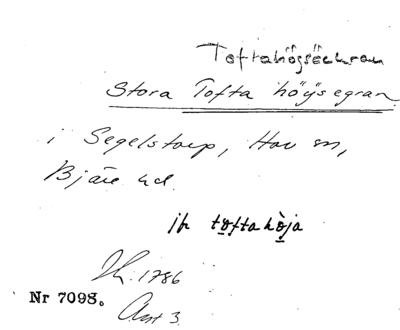 Toftahögsëkran
Stora Tofta höijs egran
i Segelstorp, Hov sn,
Bjäre hd.
jfr toftahòja
1786
Nr 7098.
Akt 3